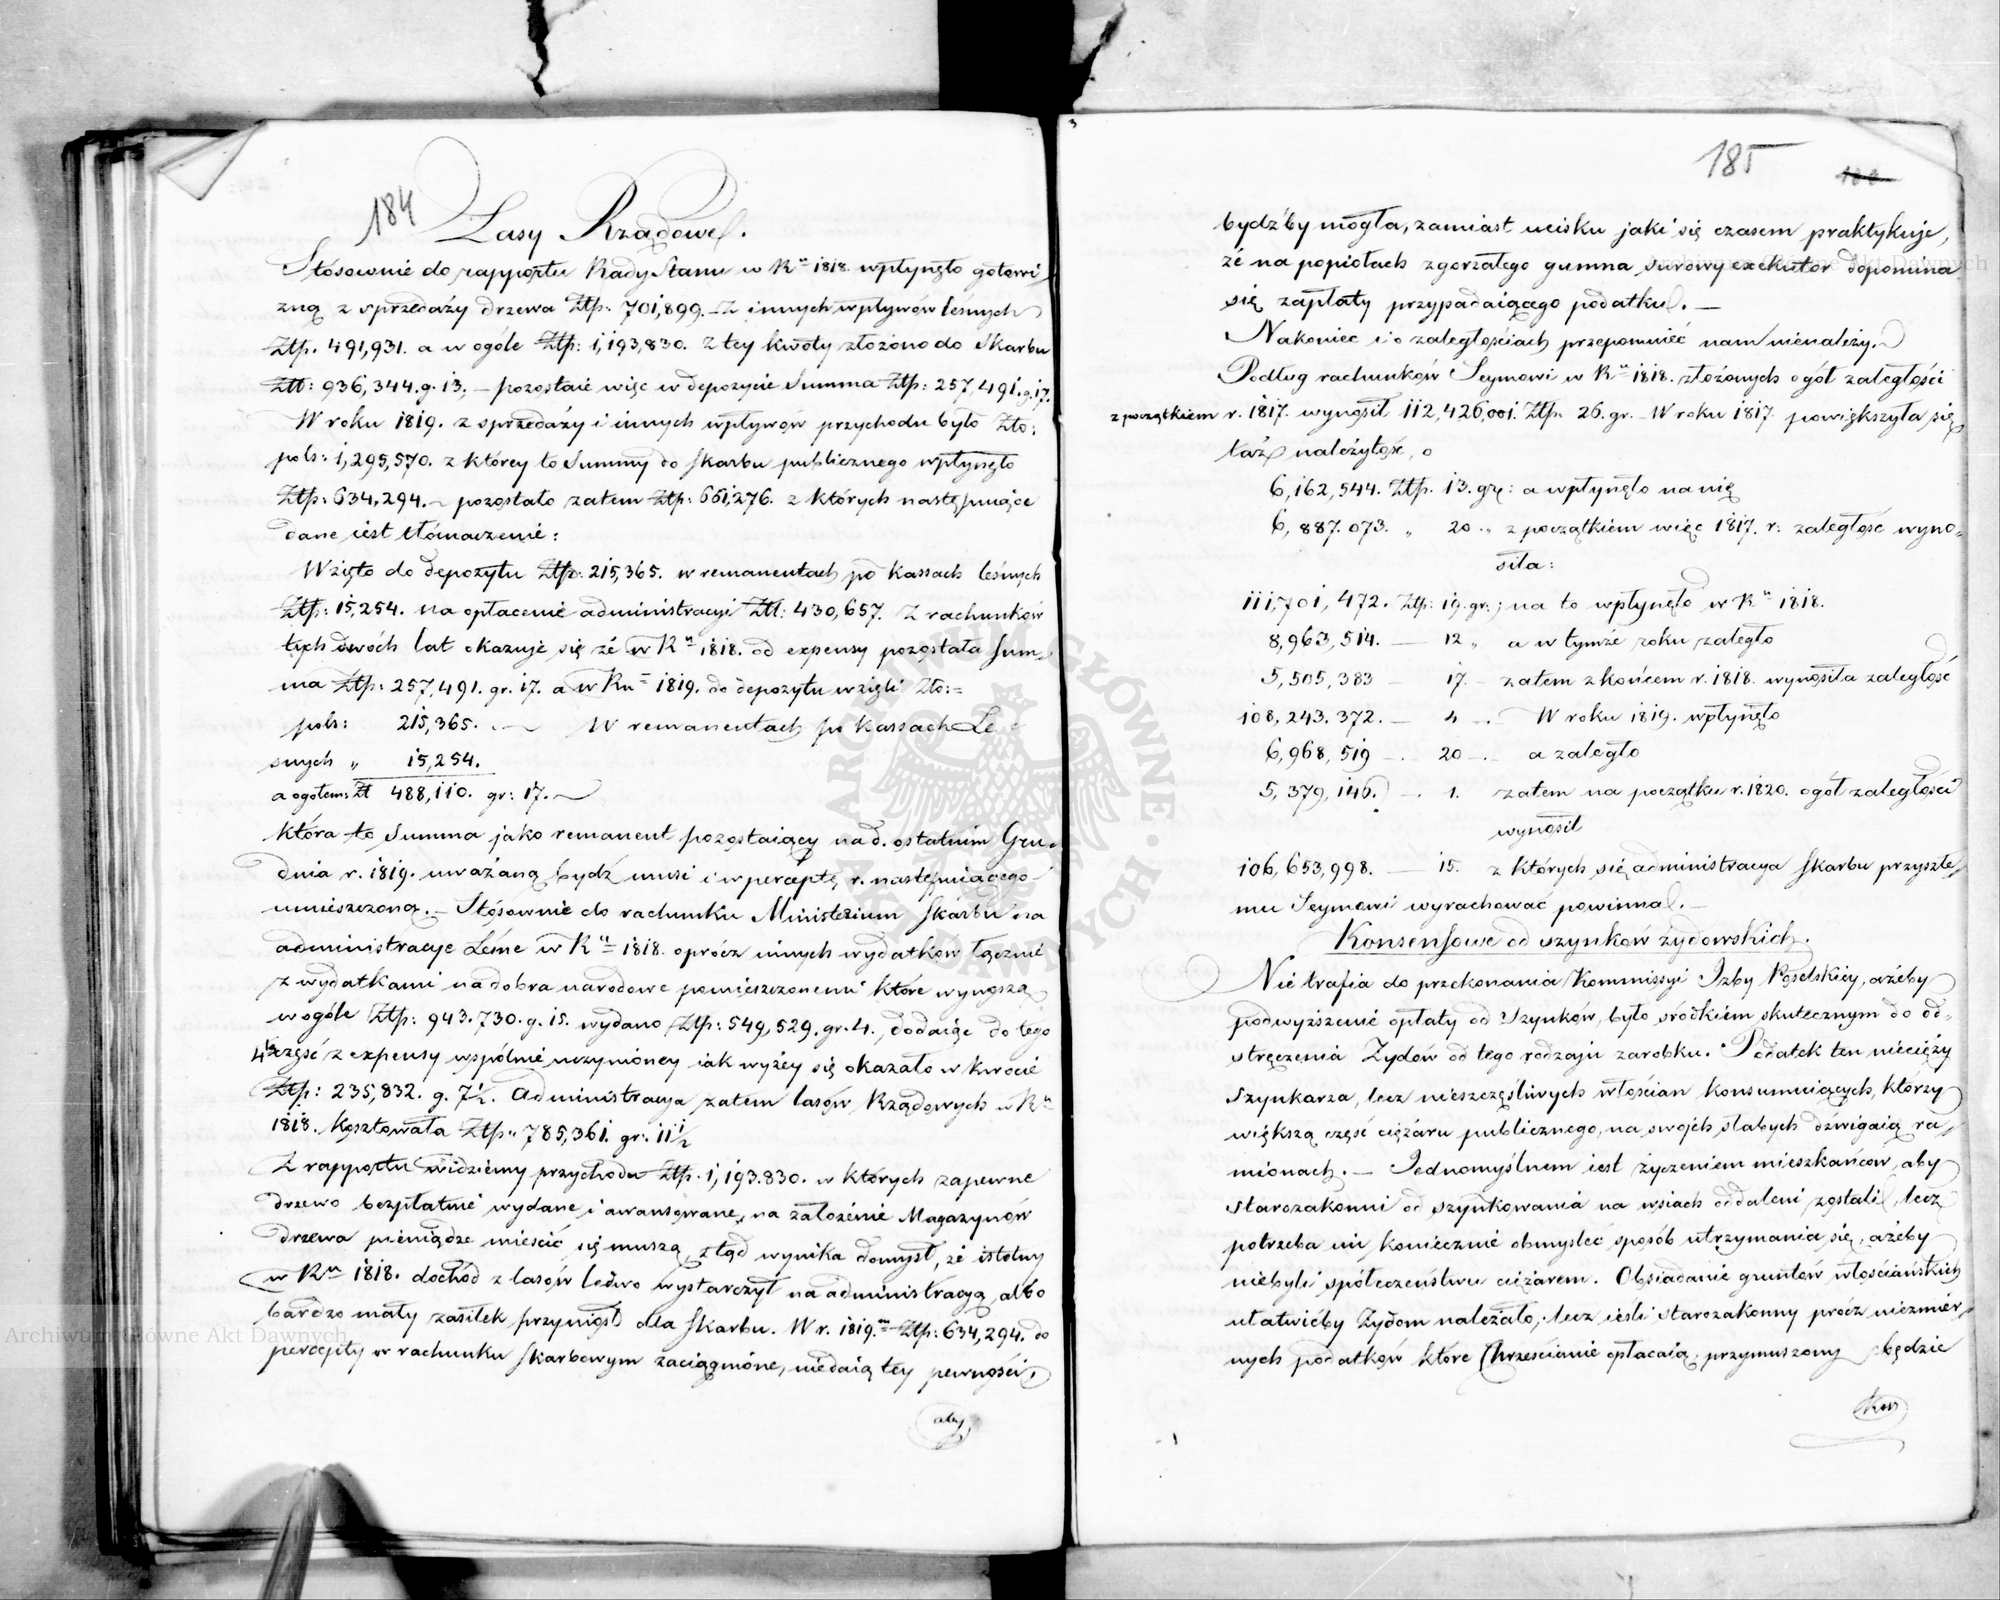 184
Lasy Rządowe.
Stósownie do rapportu Rady Stanu w Ru 1818. wpłynęło gotowi-
zną z sprzedaży drzewa Złp: 701,899. – Z innych wpływów leśnych
Złp. 491,931. a w ogóle Złp: 1,193,830. z tey kwoty złożono do Skarbu
Złt: 936,344. g. 13. – pozostaie więc w depozycie Summa Złp: 257,491. g. 17.
W roku 1819. z sprzedaży i innych wpływów przychodu było Zło:
pols: 1,295,570. z którey to Summy do Skarbu publicznego wpłynęło
Złp: 634,294. – pozostało zatem Złp: 661,276. z których następuiące
dane iest tłómaczenie:
Wzięto do depozytu Złp: 215,365. w remanentach po kassach leśnych
Złp: 15,254. na opłacenie administracyi Złt: 430,657. Z rachunków
tych dwóch lat okazuje się że w Ru 1818. od expensy pozostała Sum-
ma Złp: 257,491. gr. 17. a w Ru 1819. do depozytu wzięli Zło:=
pols: 215,365. — W remanentach po kassach Le=
snych „ 15,254.
a ogółem: Zł 488,110. gr: 17.
która to Summa jako remanent pozostaiący na d. ostatnim Gru-
dnia r. 1819. uważaną bydź musi i w perceptę r. następuiącego
umieszczoną. – Stósownie do rachunku Ministerium Skarbu na
administracye Leśne w Ru 1818. oprócz innych wydatków łącznie
z wydatkami na dobra narodowe pomieszczonemi które wynoszą
w ogóle Złp: 943.730. g. 15. wydano Złp: 549,529. gr. 4., dodaiąc do tego
4tą część z expensy wspólnie uczynioney iak wyżey się okazało w kwocie
Złp: 235,832. g. 7½. Administracya zatem lasów Rządowych w Ru
1818. kosztowała Złp: 785,361. gr: 11½
Z rapportu widziemy przychodu Złp. 1,193.830. w których zapewne
drzewo bezpłatnie wydane i awansowane na założenie Magazynów
drzewa pieniądze mieścić się muszą, ztąd wynika domysł, że istotny
w Ru 1818. dochód z lasów ledwo wystarczył na administracyą, albo
bardzo mały zasiłek przyniósł dla Skarbu. W r. 1819.m Złp: 634,294. do
percepty w rachunku Skarbowym zaciągnione, niedaią tey pewności,
aby
185
bydźby mogła, zamiast ucisku jaki się czasem praktykuje,
że na popiołach zgorzałego gumna surowy exekutor dopomina
się zapłaty przypadaiącego podatku. —
Nakoniec i o zaległościach przepomnieć nam nienależy.
Podług rachunków Seymowi w Ru 1818. złożonych ogół zaległości
z początkiem r. 1817. wynosił 112,426,001. Złp. 26. gr. – W roku 1817. powiększyła się
taż należytość, o
6,162,544. Złp. 13. gr: a wpłynęło na nią
6,887.073. „ 20 „ z początkiem więc 1817. r: zaległość wyno=
siła:
111,701,472. Złp: 19. gr:; na to wpłynęło w Ru 1818.
8,963,514. — 12 „ a w tymże roku zaległo
5,505,383 — 17. – zatem z końcem r. 1818. wynosiła zaległość
108,243.372. — 4 –. W roku 1819. wpłynęło
6,968,519 –. 20 –. a zaległo
5,379,146. –. 1. zatem na początku r. 1820. ogół zaległości
wynosił
106,653,998. — 15. z których się administracya Skarbu przyszłe-
mu Seymowi wyrachować powinna. –
Konsensowe od szynków żydowskich.
Nie trafia do przekonania Kommissyi Izby Poselskiey, ażeby
podwyższenie opłaty od Szynków, było środkiem skutecznym do od=
stręczenia Żydów od tego rodzaju zarobku. Podatek ten nieciąży
Szynkarza, lecz nieszczęśliwych włościan konsumuiących, którzy
większą część ciężaru publicznego, na swojch słabych dźwigaią ra-
mionach. – Jednomyślnem iest życzeniem mieszkańców, aby
starozakonni od szynkowania na wsiach oddaleni zostali, lecz
potrzeba im koniecznie obmyśleć sposób utrzymania się, ażeby
niebyli społeczeństwu ciężarem. Obsiadanie gruntów włościańskich
ułatwićby Żydom należało, lecz ieśli starozakonny prócz niezmier-
nych podatków które Chrześcianie opłacaią, przymuszony będzie